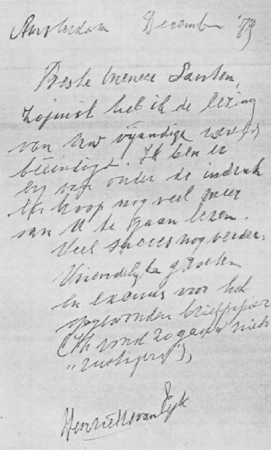 Amsterdam December '73
Beste meneer Santon,
Zojuist heb ik de lezing
van Uw vijandige wereld
beëindigd. Ik ben er
erg van onder de indruk
Ik hoop nog veel meer
van U te gaan lezen.
Veel succes nog verder.
Vriendelijke groeten
en excuus voor het
opgewonden briefpapier
(Ik vond zo gauw niets
"rustigers")
Henriëtte van Eyk